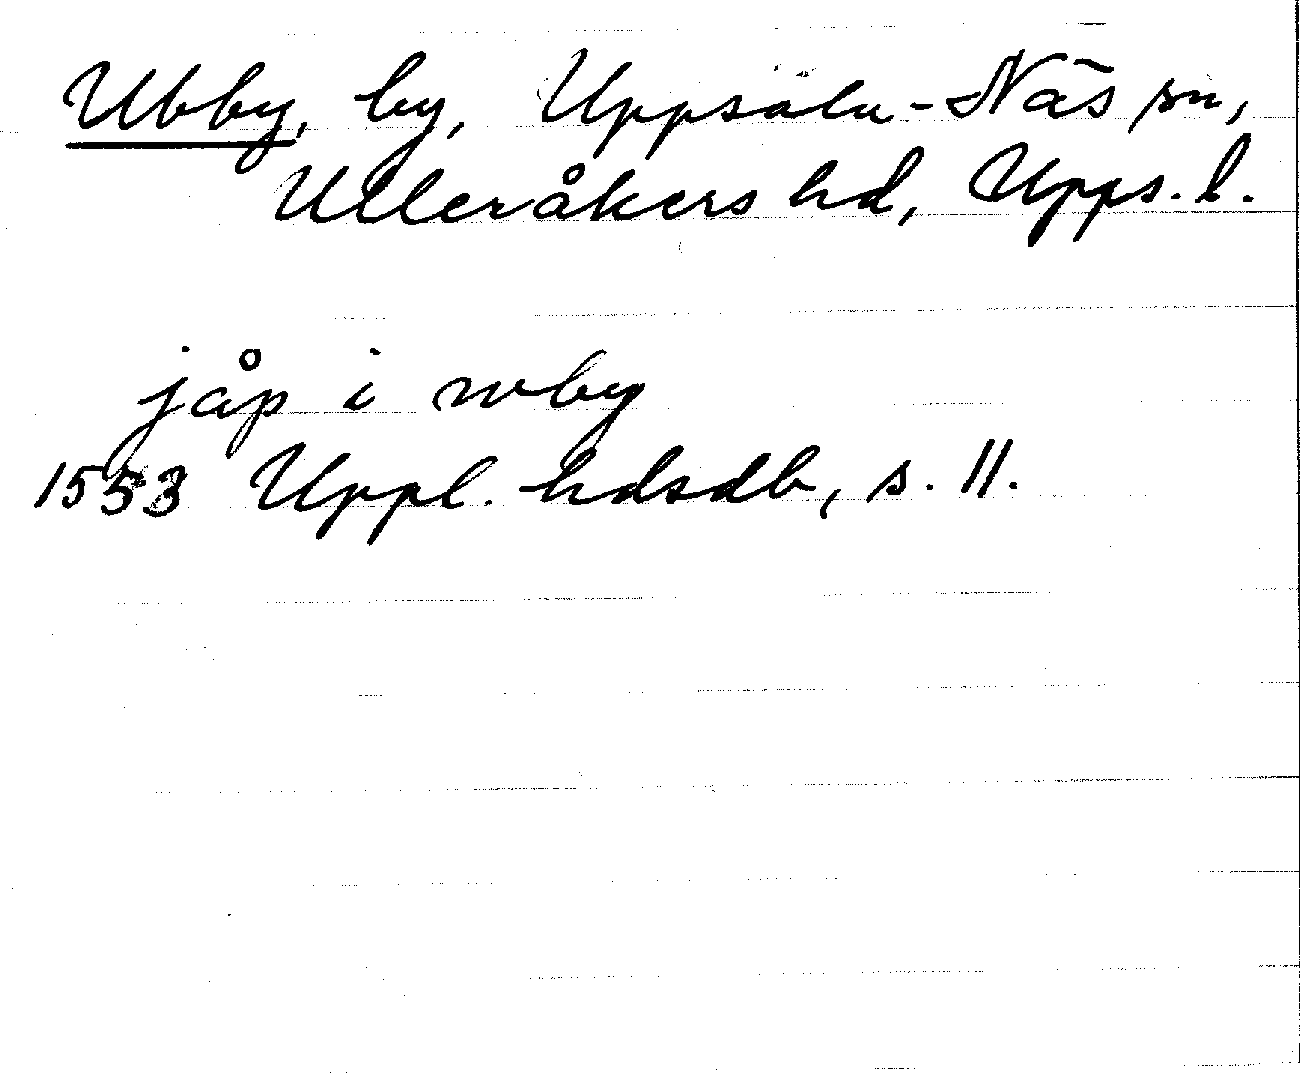 Ubby, by, Uppsala-Näs sn,
Ulleråkers hd, Upps. l.
jåp i wby
1553 Uppl. hdsdb, s. 11.